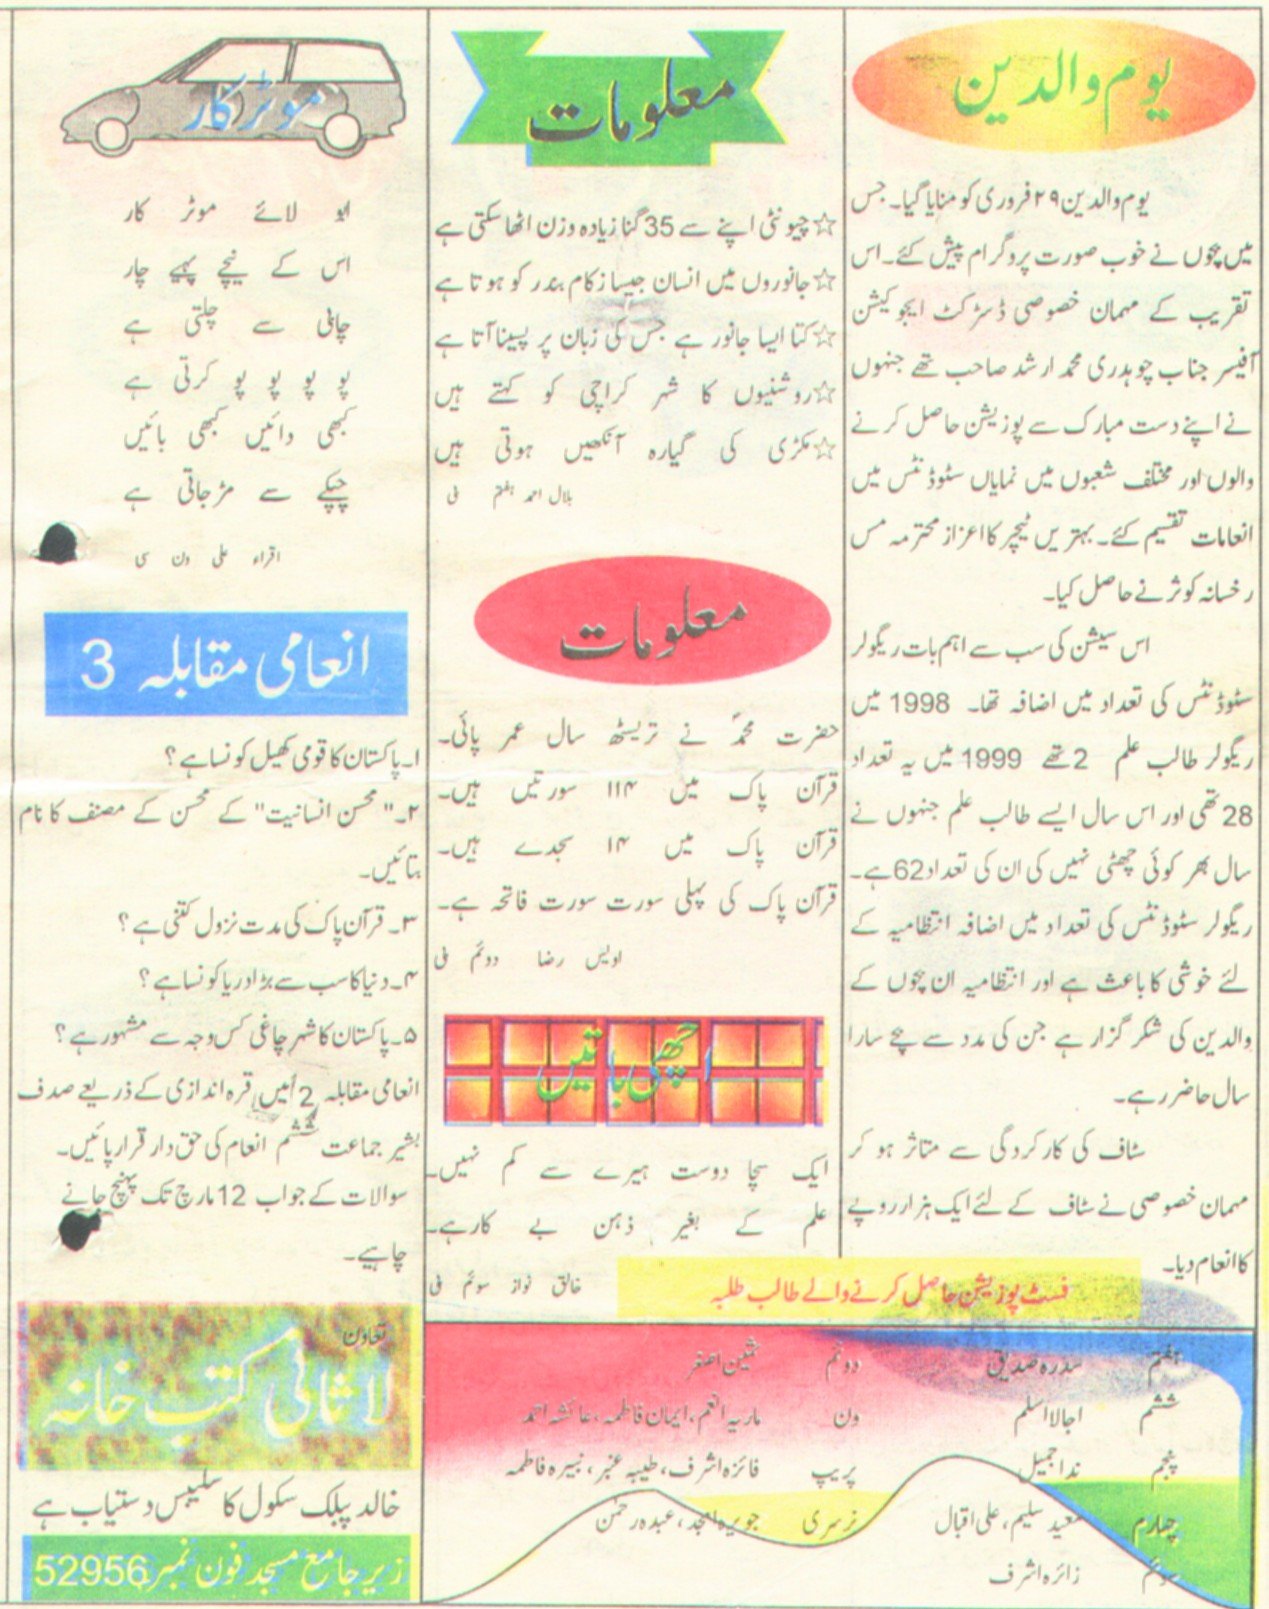 یوم والدین
یوم والدین ۲۹ فروری کو منایا گیا۔ جس
میں بچوں نے خوب صورت پروگرام پیش کئے۔ اس
تقریب کے مہمان خصوصی ڈسٹرکٹ ایجوکیشن
آفیسر جناب چوہدری محمد ارشد صاحب تھے جنہوں
نے اپنے دست مبارک سے پوزیشن حاصل کرنے
والوں اور مختلف شعبوں میں نمایاں سٹوڈنٹس میں
انعامات تقسیم کئے۔ بہتریں ٹیچر کا اعزاز محترمہ مس
رخسانہ کوثر نے حاصل کیا۔
اس سیشن کی سب سے اہم بات ریگولر
سٹوڈنٹس کی تعداد میں اضافہ تھا۔ 1998 میں
ریگولر طالب علم 2 تھے 1999 میں یہ تعداد
28 تھی اور اس سال ایسے طالب علم جنہوں نے
سال بھر کوئی چھٹی نہیں کی ان کی تعداد 62 ہے۔
ریگولر سٹوڈنٹس کی تعداد میں اضافہ انتظامیہ کے
لئے خوشی کا باعث ہے اور انتظامیہ ان بچوں کے
والدین کی شکر گزار ہے جن کی مدد سے بچے سارا
سال حاضر رہے۔
سٹاف کی کارکردگی سے متاثر ہو کر
مہمان خصوصی نے سٹاف کے لئے ایک ہزار روپے
کا انعام دیا۔
معلومات
☆ چیونٹی اپنے سے 35 گنا زیادہ وزن اٹھا سکتی ہے
☆ جانوروں میں انسان جیسا زکام بندر کو ہوتا ہے
☆ کتا ایسا جانور ہے جس کی زبان پر پسینا آتا ہے
☆ روشنیوں کا شہر کراچی کو کہتے ہیں
☆ مکڑی کی گیارہ آنکھیں ہوتی ہیں
بلال احمد ہفتم بی
معلومات
حضرت محمدؐ نے تریسٹھ سال عمر پائی۔
قرآن پاک میں ۱۱۴ سورتیں ہیں۔
قرآن پاک میں ۱۴ سجدے ہیں۔
قرآن پاک کی پہلی سورت سورت فاتحہ ہے۔
اویس رضا دوئم بی
اچھی باتیں
ایک سچا دوست ہیرے سے کم نہیں۔
علم کے بغیر ذہن بے کار ہے۔
خالق نواز سوئم بی
موٹر کار
ابو لائے موٹر کار
اس کے نیچے پہیے چار
چابی سے چلتی ہے
پو پو پو پو کرتی ہے
کبھی دائیں کبھی بائیں
چپکے سے مڑ جاتی ہے
اقراء علی ون سی
انعامی مقابلہ 3
۱۔ پاکستان کا قومی کھیل کونسا ہے؟
۲۔ "محسن انسانیت" کے محسن کے مصنف کا نام
بتائیں۔
۳۔ قرآن پاک کی مدت نزول کتنی ہے؟
۴۔ دنیا کا سب سے بڑا دریا کونسا ہے؟
۵۔ پاکستان کا شہر چاغی کس وجہ سے مشہور ہے؟
انعامی مقابلہ 2 میں قرہ اندازی کے ذریعے صدف
بشیر جماعت ششم انعام کی حق دار قرار پائیں۔
سوالات کے جواب 12 مارچ تک پہنچ جانے
چاہیے۔
تعاون
لاثانی کتب خانہ
خالد پبلک سکول کا سلیبس دستیاب ہے
زیر جامع مسجد فون نمبر 52956
فسٹ پوزیشن حاصل کرنے والے طالب طلبہ
ہفتم سدرہ صدیقی
ششم اجالا اسلم
پنجم ندا جمیل
چہارم معید سلیم، علی اقبال
سوئم زائرہ اشرف
دوئم ثمین اصغر
ون ماریہ انعم، ایمان فاطمہ، عائشہ احمد
پریپ فائزہ اشرف، طیبہ عنبر، نبیرہ فاطمہ
نرسری جویریہ امجد، عبدہ رحمٰن